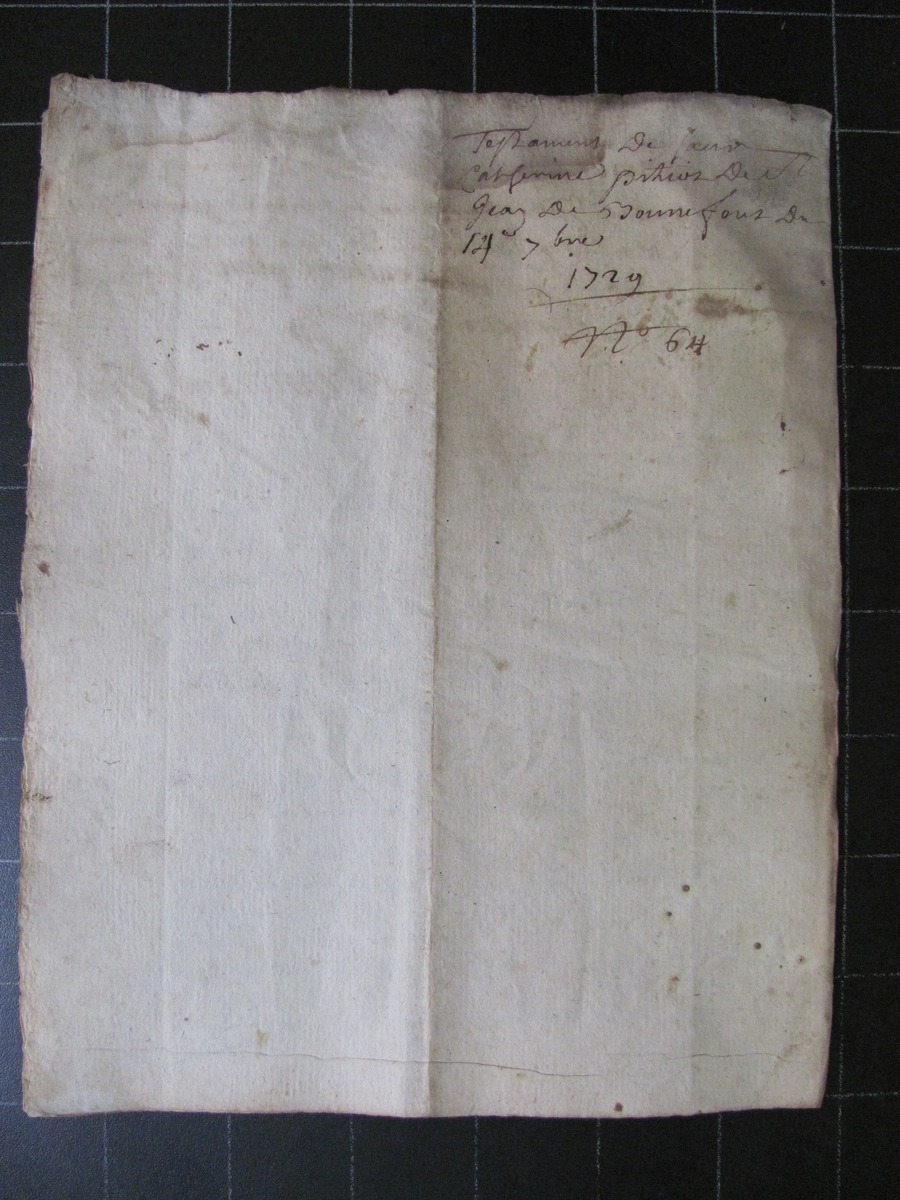 Testament De sœur
Catherine pitiot De St
Jean De Bonnefont Du
14e 7bre
1729
No 64